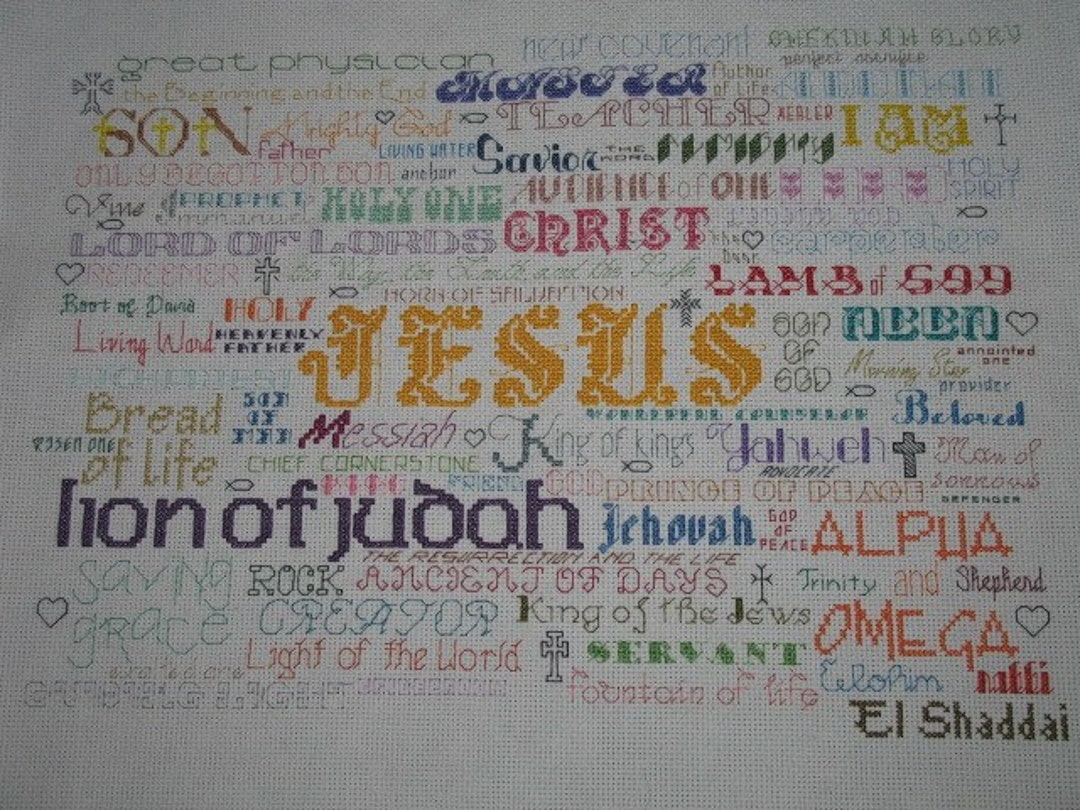 great physician new covenant SHEKINAH GLORY
perfect sacrifice
the Beginning and the End MASTER Author of Life
SON Almighty God TEACHER HEALER I AM
father LIVING WATER Savior THE WORD
ONLY BEGOTTON SON anchor AUDIENCE of ONE HOLY SPIRIT
Vine PROPHET HOLY ONE
LORD OF LORDS CHRIST the door carpenter
REDEEMER the Way, the Truth and the Life LAMB of GOD
HORN OF SALVATION
Root of David HOLY JESUS SON OF GOD ABBA
Living Word HEAVENLY FATHER Morning Star annointed one
provider
Bread of life SON OF MAN WONDERFUL COUNSELOR Beloved
RISEN ONE Messiah King of kings Yahweh Man of sorrows
CHIEF CORNERSTONE ADVOCATE
KING FRIEND GOD PRINCE OF PEACE DEFENDER
lion of judah Jehovah GOD OF PEACE ALPHA
THE RESURRECTION AND THE LIFE
saving grace ROCK ANCIENT OF DAYS Trinity and Shepherd
CREATOR King of the Jews OMEGA
exalted one Light of the World SERVANT
GUIDING LIGHT fountain of life Elohim rabbi
El Shaddai